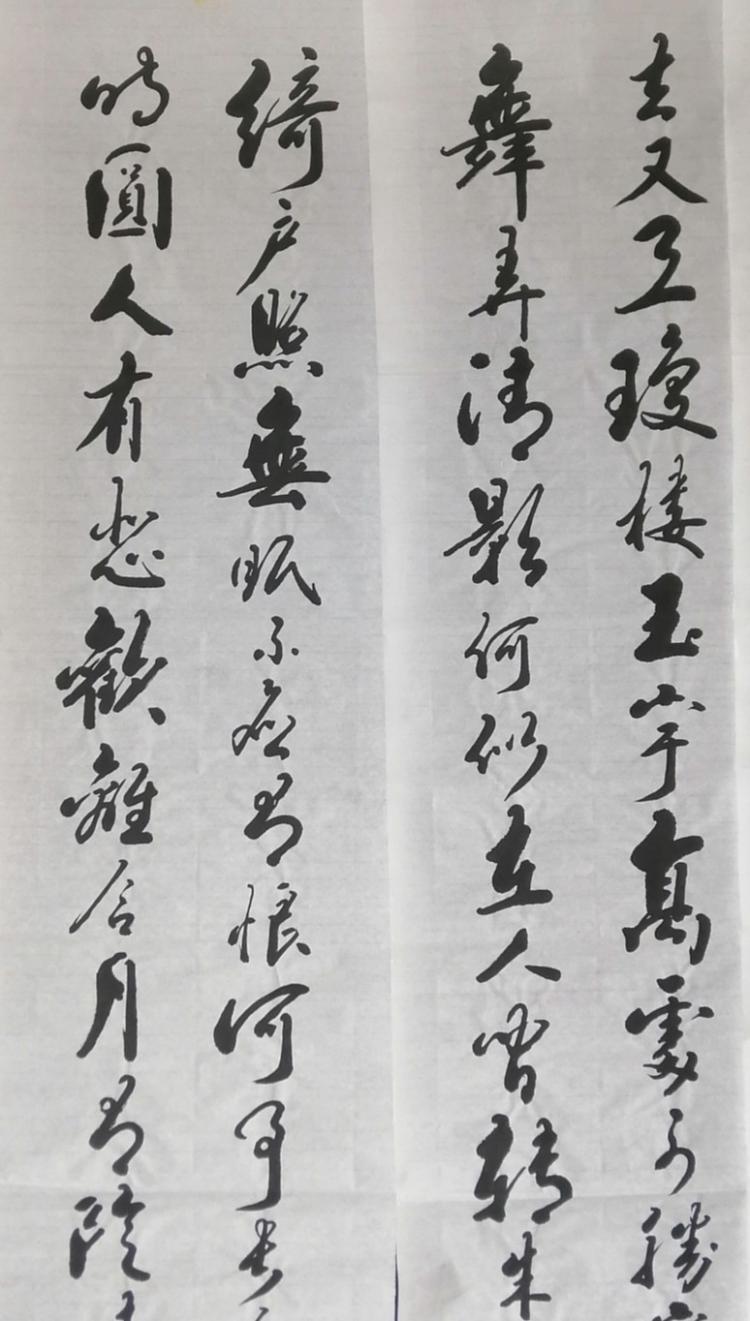 去又恐瓊樓玉宇高處不勝
舞弄清影何似在人間轉朱
綺户照無眠不應有恨何事長
時圓人有悲歡離合月有陰